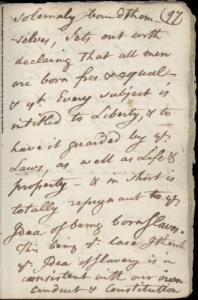 solemnly bound them- (97
selves, sets out with
declaring that all men
are born free & equal -
& yt. Every subject is
intitled to Liberty, & to
have it guarded by ye.
Laws, as well as Life &
property - & in short is
totally repugnant to ye.
Idea of being born Slaves.
This being ye. case I think
ye. Idea of Slavery is in-
consistent with our own
conduct & Constitution